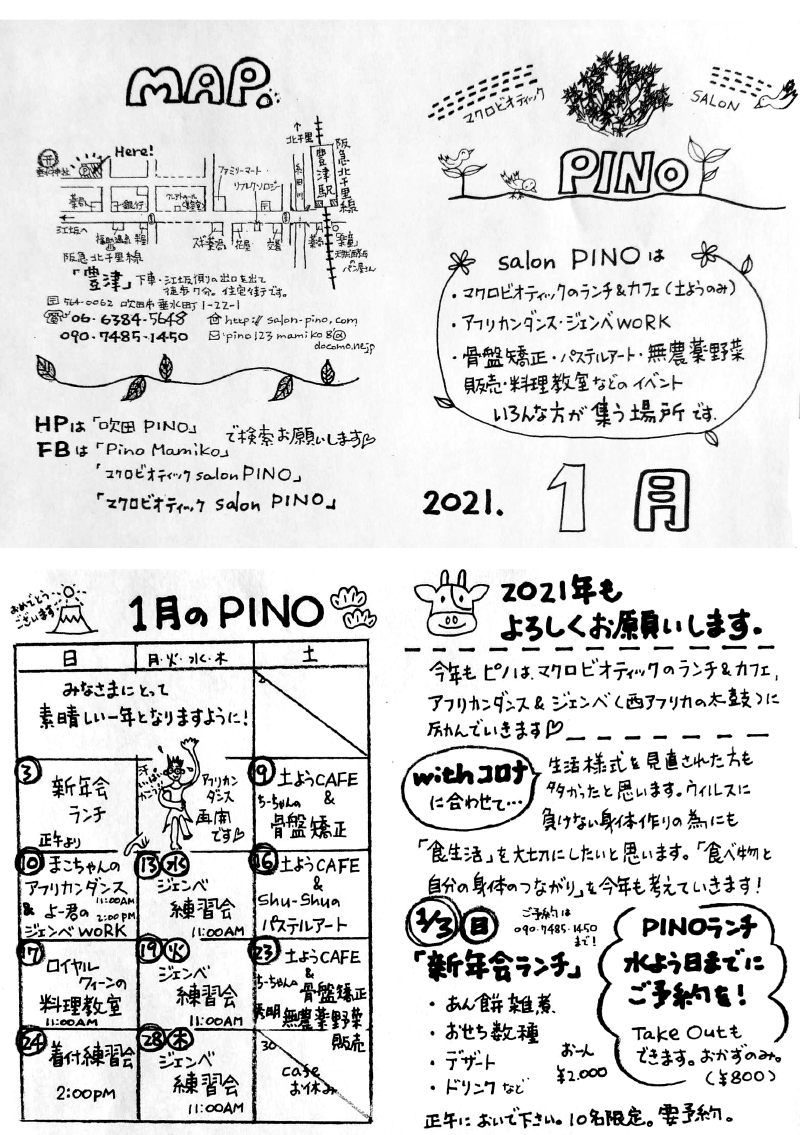 MAP.
Here!
北千里
阪急北千里線
豊津駅
糸田川
ファミリーマート
リフレクソロジー
薬局
銀行
スギ薬局
花屋
交番
江坂へ
パン屋さん
阪急北千里線
「豊津」下車・江坂側の出口を出て
徒歩7分。住宅街です。
〒564-0062 吹田市垂水町1-22-1
06・6384・5648
http://salon-pino.com
090・7485・1450
pino123mamiko8@
docomo.ne.jp
HPは「吹田 PINO」
で検索お願いします♡
FBは「Pino Mamiko」
「マクロビオティック salon PINO」
「マクロビオティック salon PINO」
マクロビオティック
SALON
PINO
salon PINOは
・マクロビオティックのランチ&カフェ(土ようのみ)
・アフリカンダンス・ジェンベWORK
・骨盤矯正・パステルアート・無農薬野菜
販売・料理教室などのイベント
いろんな方が集う場所です。
2021. 1月
おめでとう
ございます
1月のPINO
日
月・火・水・木
土
みなさまにとって
素晴しい一年となりますように!
3
新年会
ランチ
正午より
アフリカン
ダンス
再開
です♡
9 土ようCAFE
ちーちゃんの &
骨盤矯正
10 まこちゃんの
アフリカンダンス
11:00AM
& よー君の 2:00PM
ジェンベWORK
13 水
ジェンベ
練習会
11:00AM
16 土ようCAFE
&
Shu-Shuの
パステルアート
17
ロイヤル
クィーンの
料理教室
11:00AM
19 火
ジェンベ
練習会
11:00AM
23 土ようCAFE
&
ちーちゃんの 骨盤矯正
秀明 無農薬野菜
販売
24
着付練習会
2:00PM
28 木
ジェンベ
練習会
11:00AM
30
cafe
お休み
2021年も
よろしくお願いします。
今年もピノは、マクロビオティックのランチ&カフェ、
アフリカンダンス&ジェンベ(西アフリカの太鼓)に
励んでいきます♡
withコロナ
に合わせて…
生活様式を見直された方も
多かったと思います。ウィルスに
負けない身体作りの為にも
「食生活」を大切にしたいと思います。「食べ物と
自分の身体のつながり」を今年も考えていきます!
1/3 日
ご予約は
090・7485・1450
まで!
「新年会ランチ」
・あん餅雑煮
・おせち数種
・デザート
・ドリンクなど
お一人
¥2.000
PINOランチ
水よう日までに
ご予約を!
Take Outも
できます。おかずのみ。
(¥800)
正午においで下さい。10名限定。要予約。